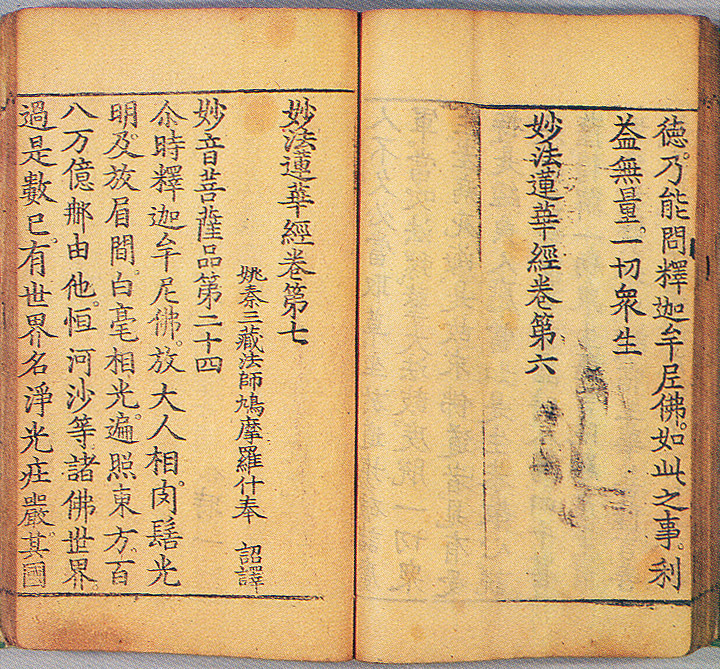 德。乃能問釋迦牟尼佛。如此之事。利
益無量。一切衆生
妙法蓮華經卷第六
妙法蓮華經卷第七
姚秦三藏法師鳩摩羅什奉 詔譯
妙音菩薩品第二十四
尒時釋迦牟尼佛。放大人相。肉髻光
明。及放眉間。白毫相光。遍照東方。百
八万億那由他。恒河沙等諸佛世界。
過是數已。有世界名淨光疘嚴。其國